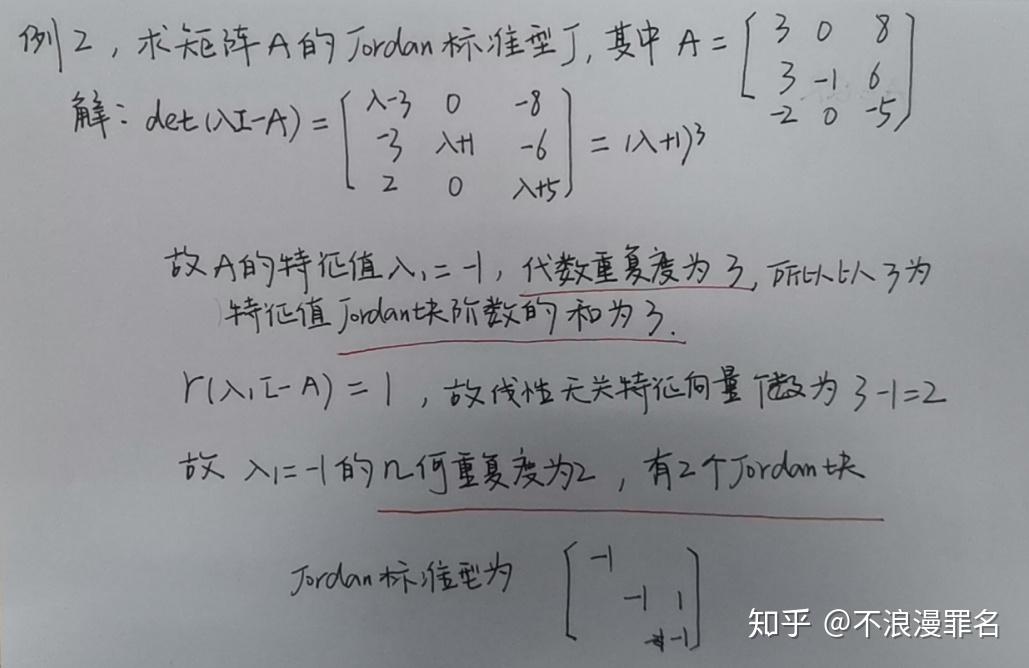 例2，求矩阵A的Jordan标准型J，其中 A = [3 0 8
3 -1 6
-2 0 -5]
解：det(λI-A) = [λ-3 0 -8
-3 λ+1 -6
2 0 λ+5] = (λ+1)³
故A的特征值λ₁=-1，代数重复度为3，所以以λ为
特征值Jordan块阶数的和为3.
r(λ₁I-A)=1，故线性无关特征向量个数为3-1=2
故 λ₁=-1的几何重复度为2，有2个Jordan块
Jordan标准型为 [-1
-1 1
-1]
知乎 @不浪漫罪名